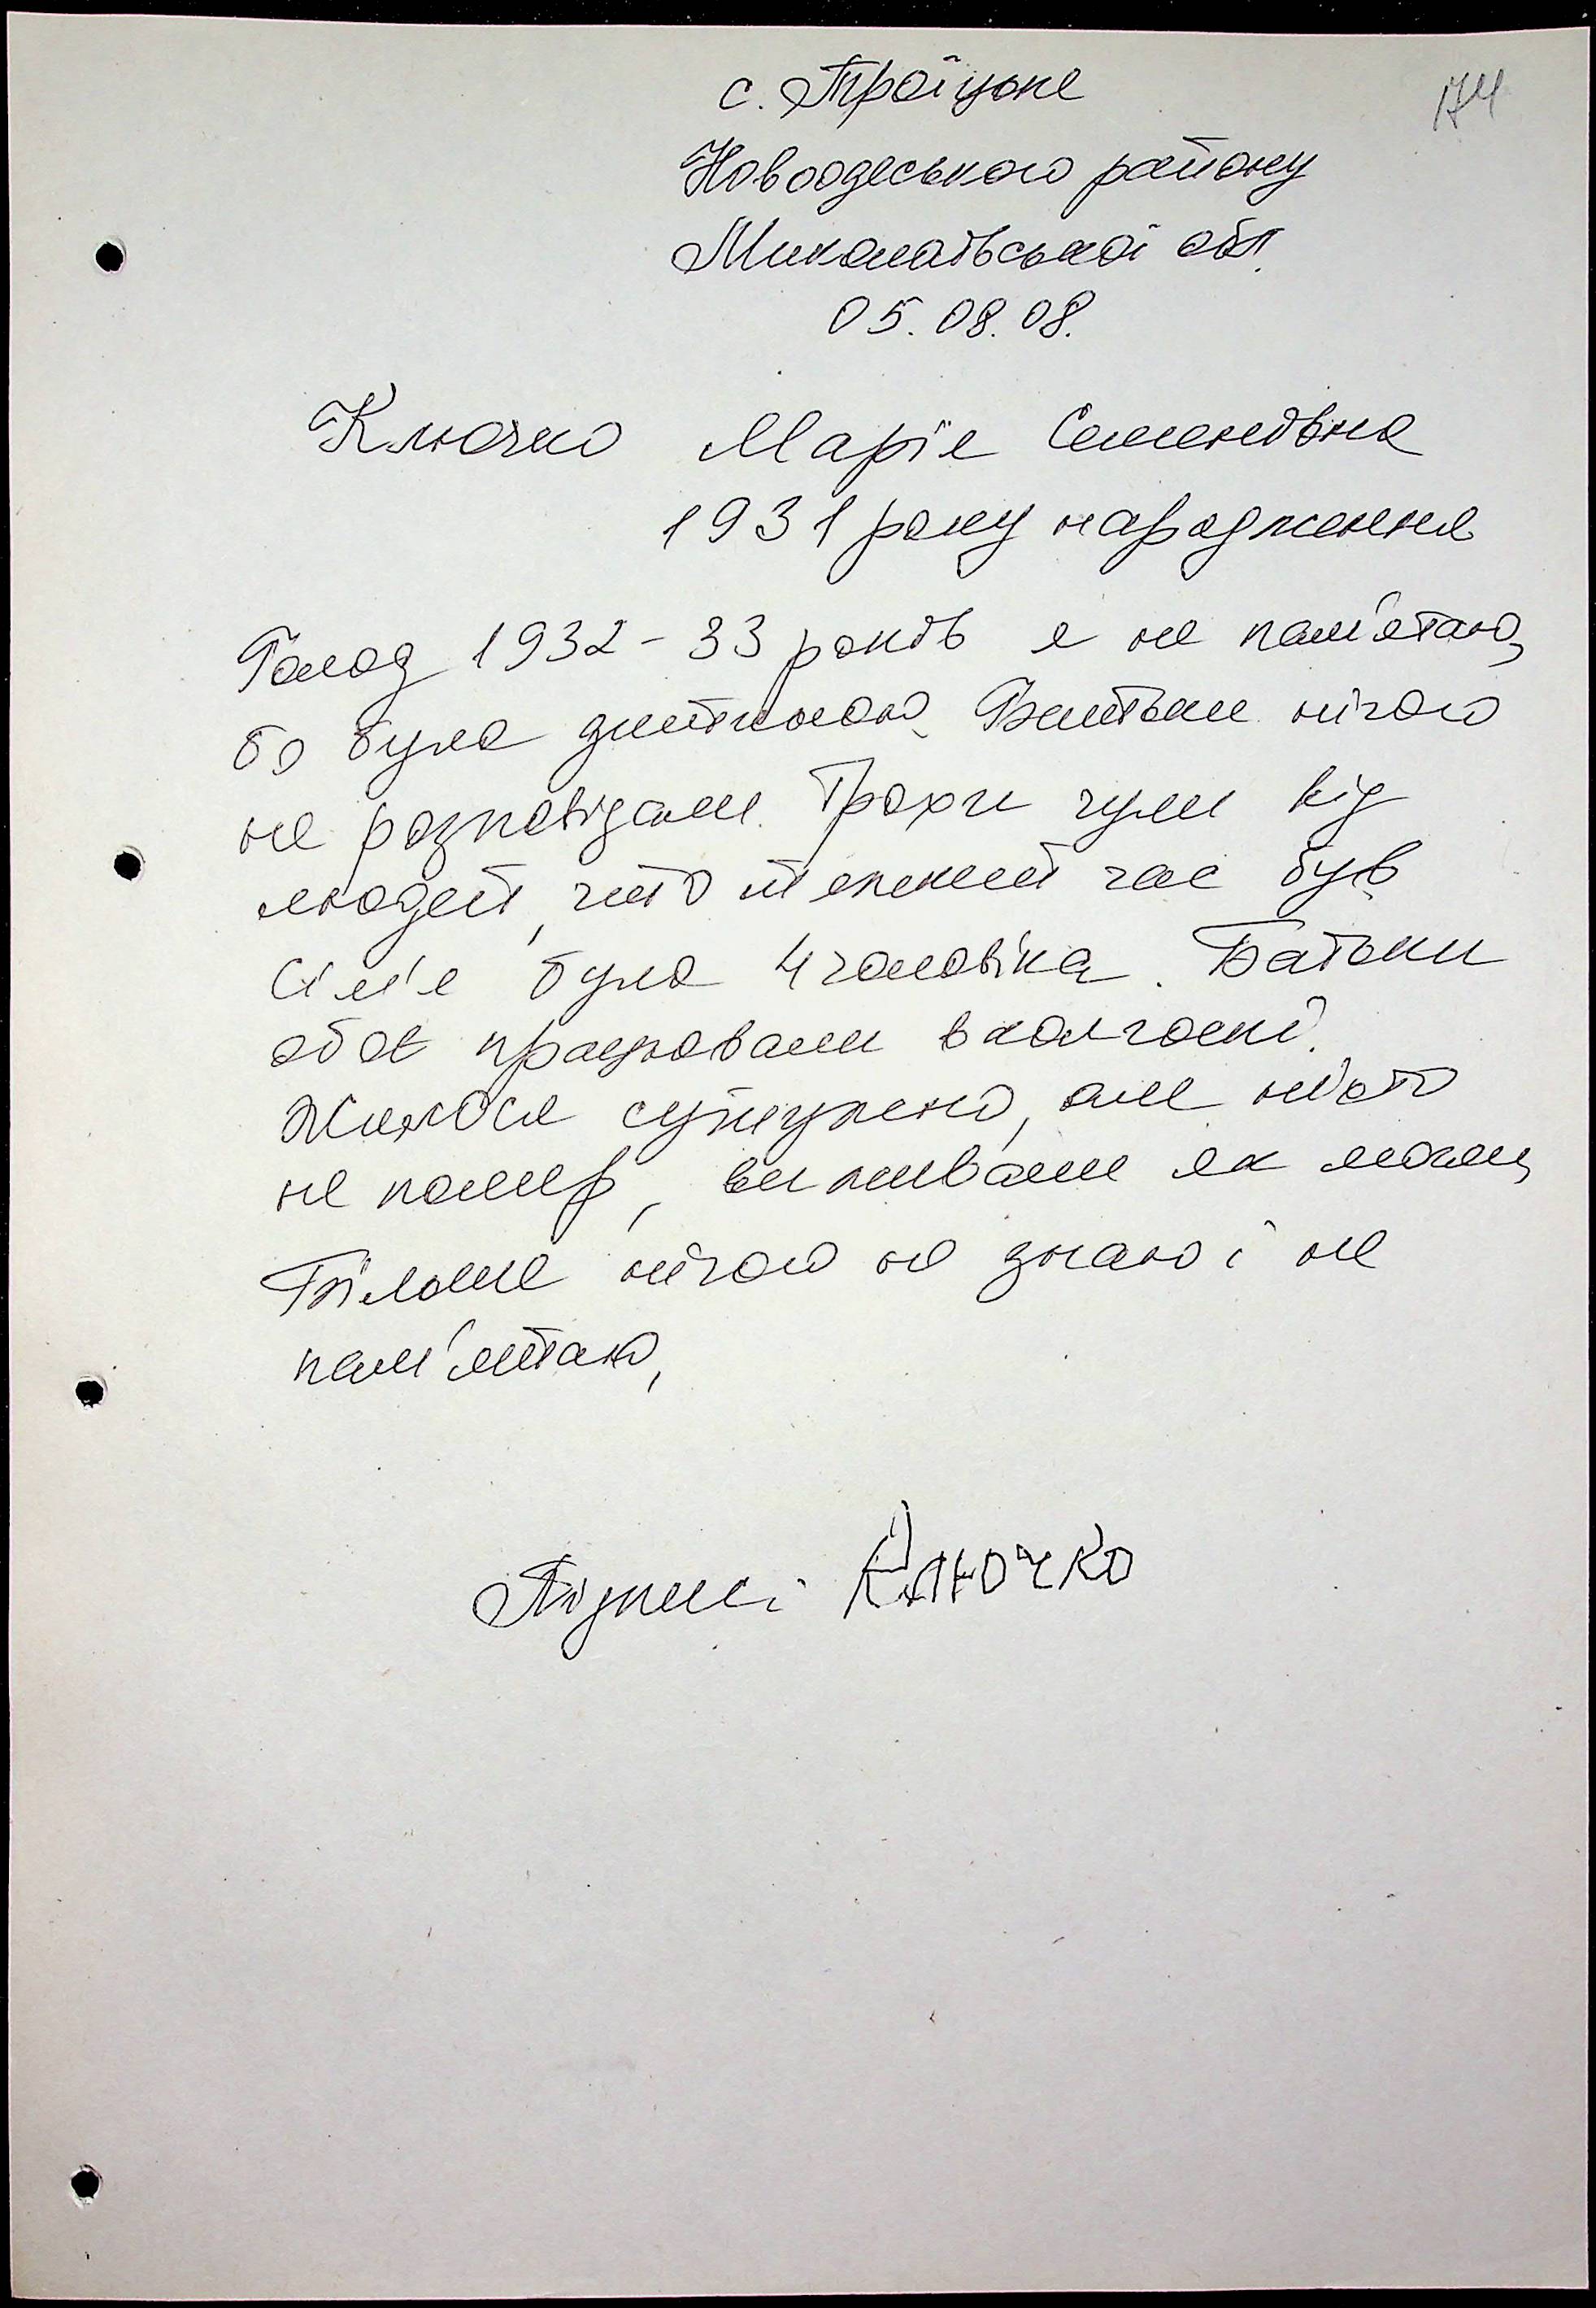 174
с. Троїцьке
Новоодеського району
Миколаївської обл.
05.08.08.
Ключко Марія Семенівна
1931 року народження
Голод 1932-33 років я не пам'ятаю,
бо була дитиною. Батьки нічого
не розповідали. Трохи чули від
людей, що тяжкий час був.
Сім'я була 4 чоловіка. Батьки
обоє працювали в колгоспі.
Жилося сутужно, але ніхто
не помер, виживали як могли,
Більше нічого не знаю і не
пам'ятаю,
Підписі Ключко